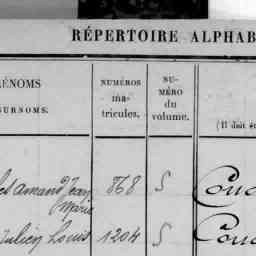 RÉPERTOIRE ALPHAB
RÉNOMS
SURNOMS.
NUMÉROS
ma-
tricules.
NU-
MÉRO
du
volume.
(Il doit êt
Amand Jean 868 5
Marie
Julien Louis 1204 5